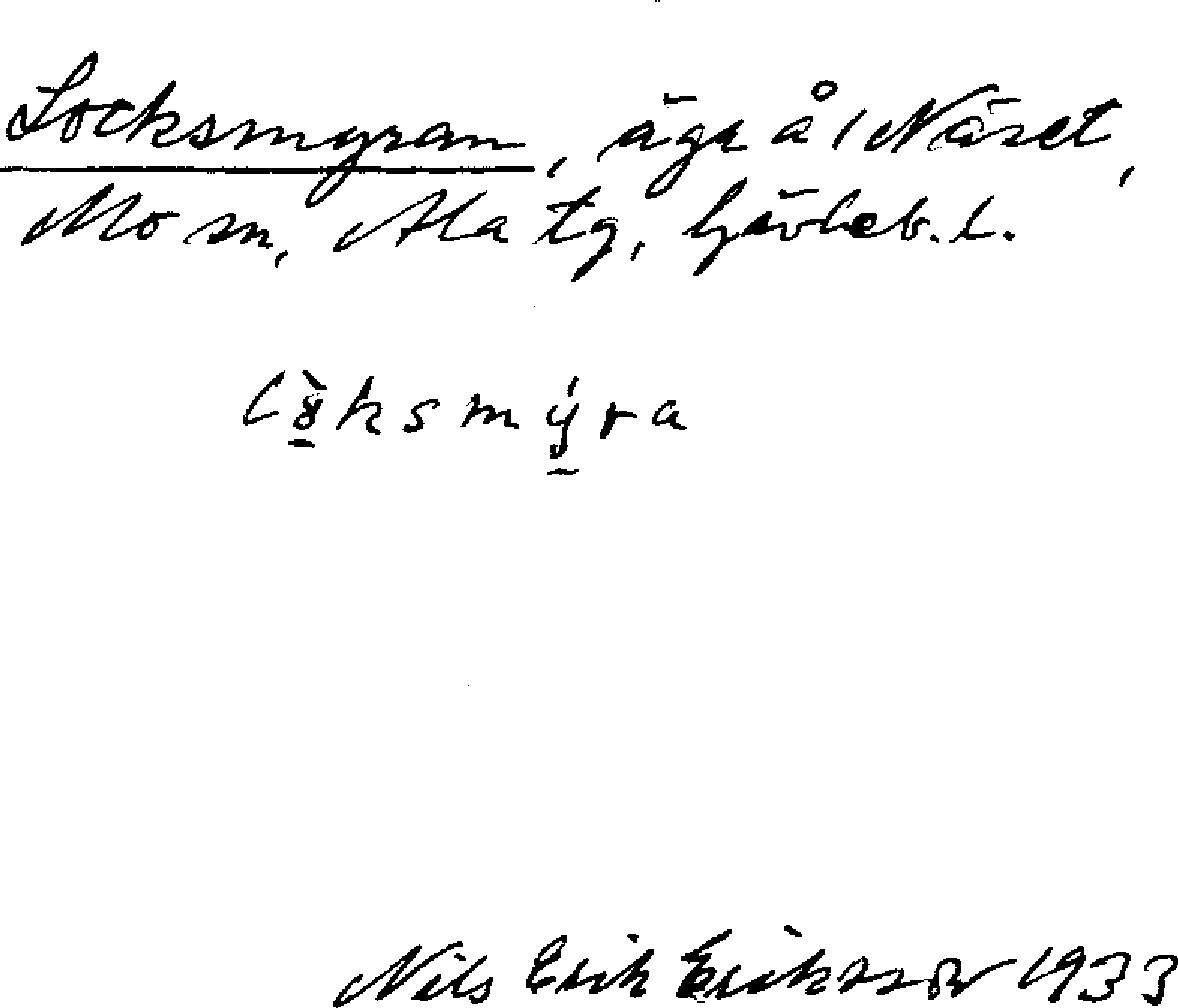 Locksmyran, äga å 1 Näset,
Mo sn, Ala tg, Gävleb. l.
lòksmýra
Nils Erik Eriksson 1933